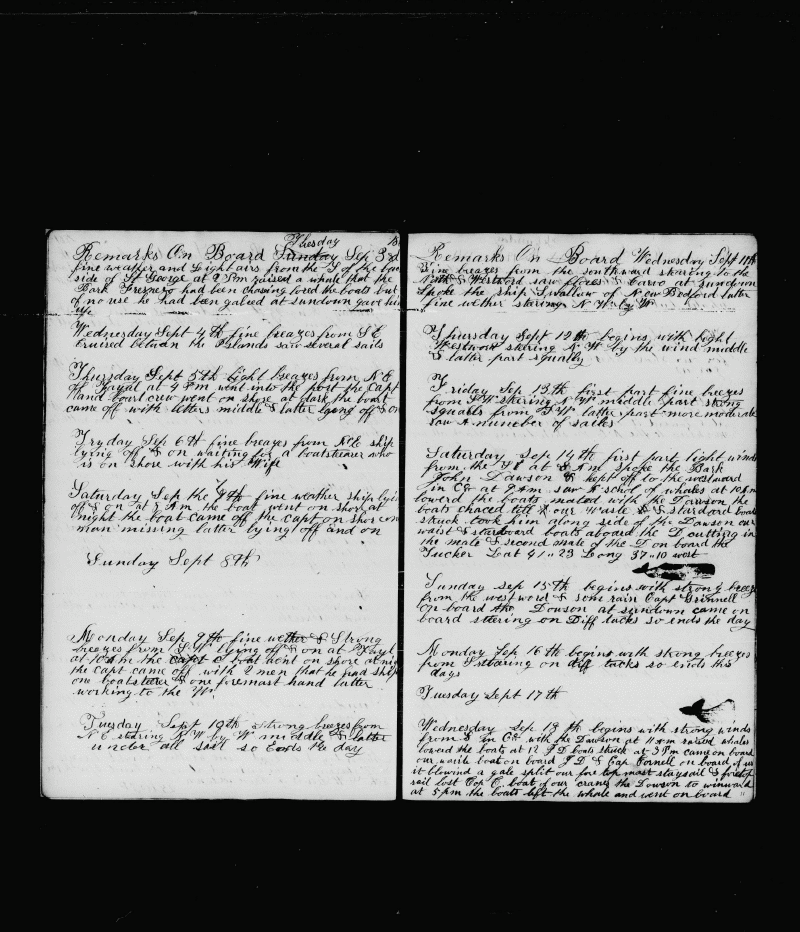 Thesday 18
Remarks On Board Sunday Sep 3rd
fine weather and Light airs from the S of the bac
side of St George at 2 Pm raised a whale that the
Bark had been chasing lored the boats but
of no use he had been galied at sundown gave him
up
Wednesday Sept 4th fine breazes from S E
Cruised between the Islands saw several sails
Thursday Sept 5th Light breazes from N E
off Fayal at 4 Pm went into the port the Capt
and boat crew went on shore at dark the boat
came off with letters middle & latter lying off & on
Fryday Sep 6th fine breazes from N E ship
lying off & on waiting for a boatstearer who
is on shore with his Wife
Saturday Sep the 7th fine weather ship lyin
off & on at 8 A m the boat went on shore at
night the boat came off the capt on shore one
man missing latter lying off and on
Sunday Sept 8th
Monday Sep 9th fine wether & Strong
breazes from S W lying off & on at Fayl
at 10 a m the Capt & boat went on shore at nig
the capt came off with 2 men that he had ship
one boatstearer & one foremast hand latter
working to the W
Tuesday Sept 10th strong breezes from
N E stearing N W by W middle & latter
under all sail so Ends the day
Remarks On Board Wednesday Sept 11th
Fine breazes from the southward stearing to the
North & Westward saw flores & Corvo at sundown
Spoke the ship Swallow of New Bedford latter
fine wether stearing N W by W
Thursday Sept 12th begins with light
Westward stearing N W by the wind middle
& latter part squally
Friday Sep 13th first part fine breezes
from S W skering N W middle part strong
squalls from S W latter part more moderate
saw A number of sailes
Saturday Sep 14th first part light winds
from the at 8 A M spoke the Bark
John Dawson & kept off to the westward
in Co at 9 A m saw A schol of whales at 10 A m
lowerd the boats mated with the Dawson the
boats chaced till our Waist & Starboard boats
struck took him along side of the Dawson our
waist & starboard boats aboard the D cutting in
the mate & second mate of the D on board the
Tucker Lat 41 . . 23 Long 37 . . 10 west
Sunday sep 15th begins with strong breez
from the westword & some rain Capt Grinnell
on board the Dowson at sundown came on
board steering on Diff tacks so ends the day
Monday Sep 16th begins with strong breezes
from S stearing on diff tacks so ends this
days
Tuesday Sept 17th
Wednesday Sep 18th begins with strong winds
from S in Co with the Dawson at 11 A m raised whales
lowerd the boats at 12 J D boats struck at 3 P m came on board
our waist boat on board J D & Cap Cornell on board of us
it blowind a gale split our fore top mast staysail & foretop
sail lost boat of our cranes the Dowson to winward
at 5 pm the boats left the whale and went on board